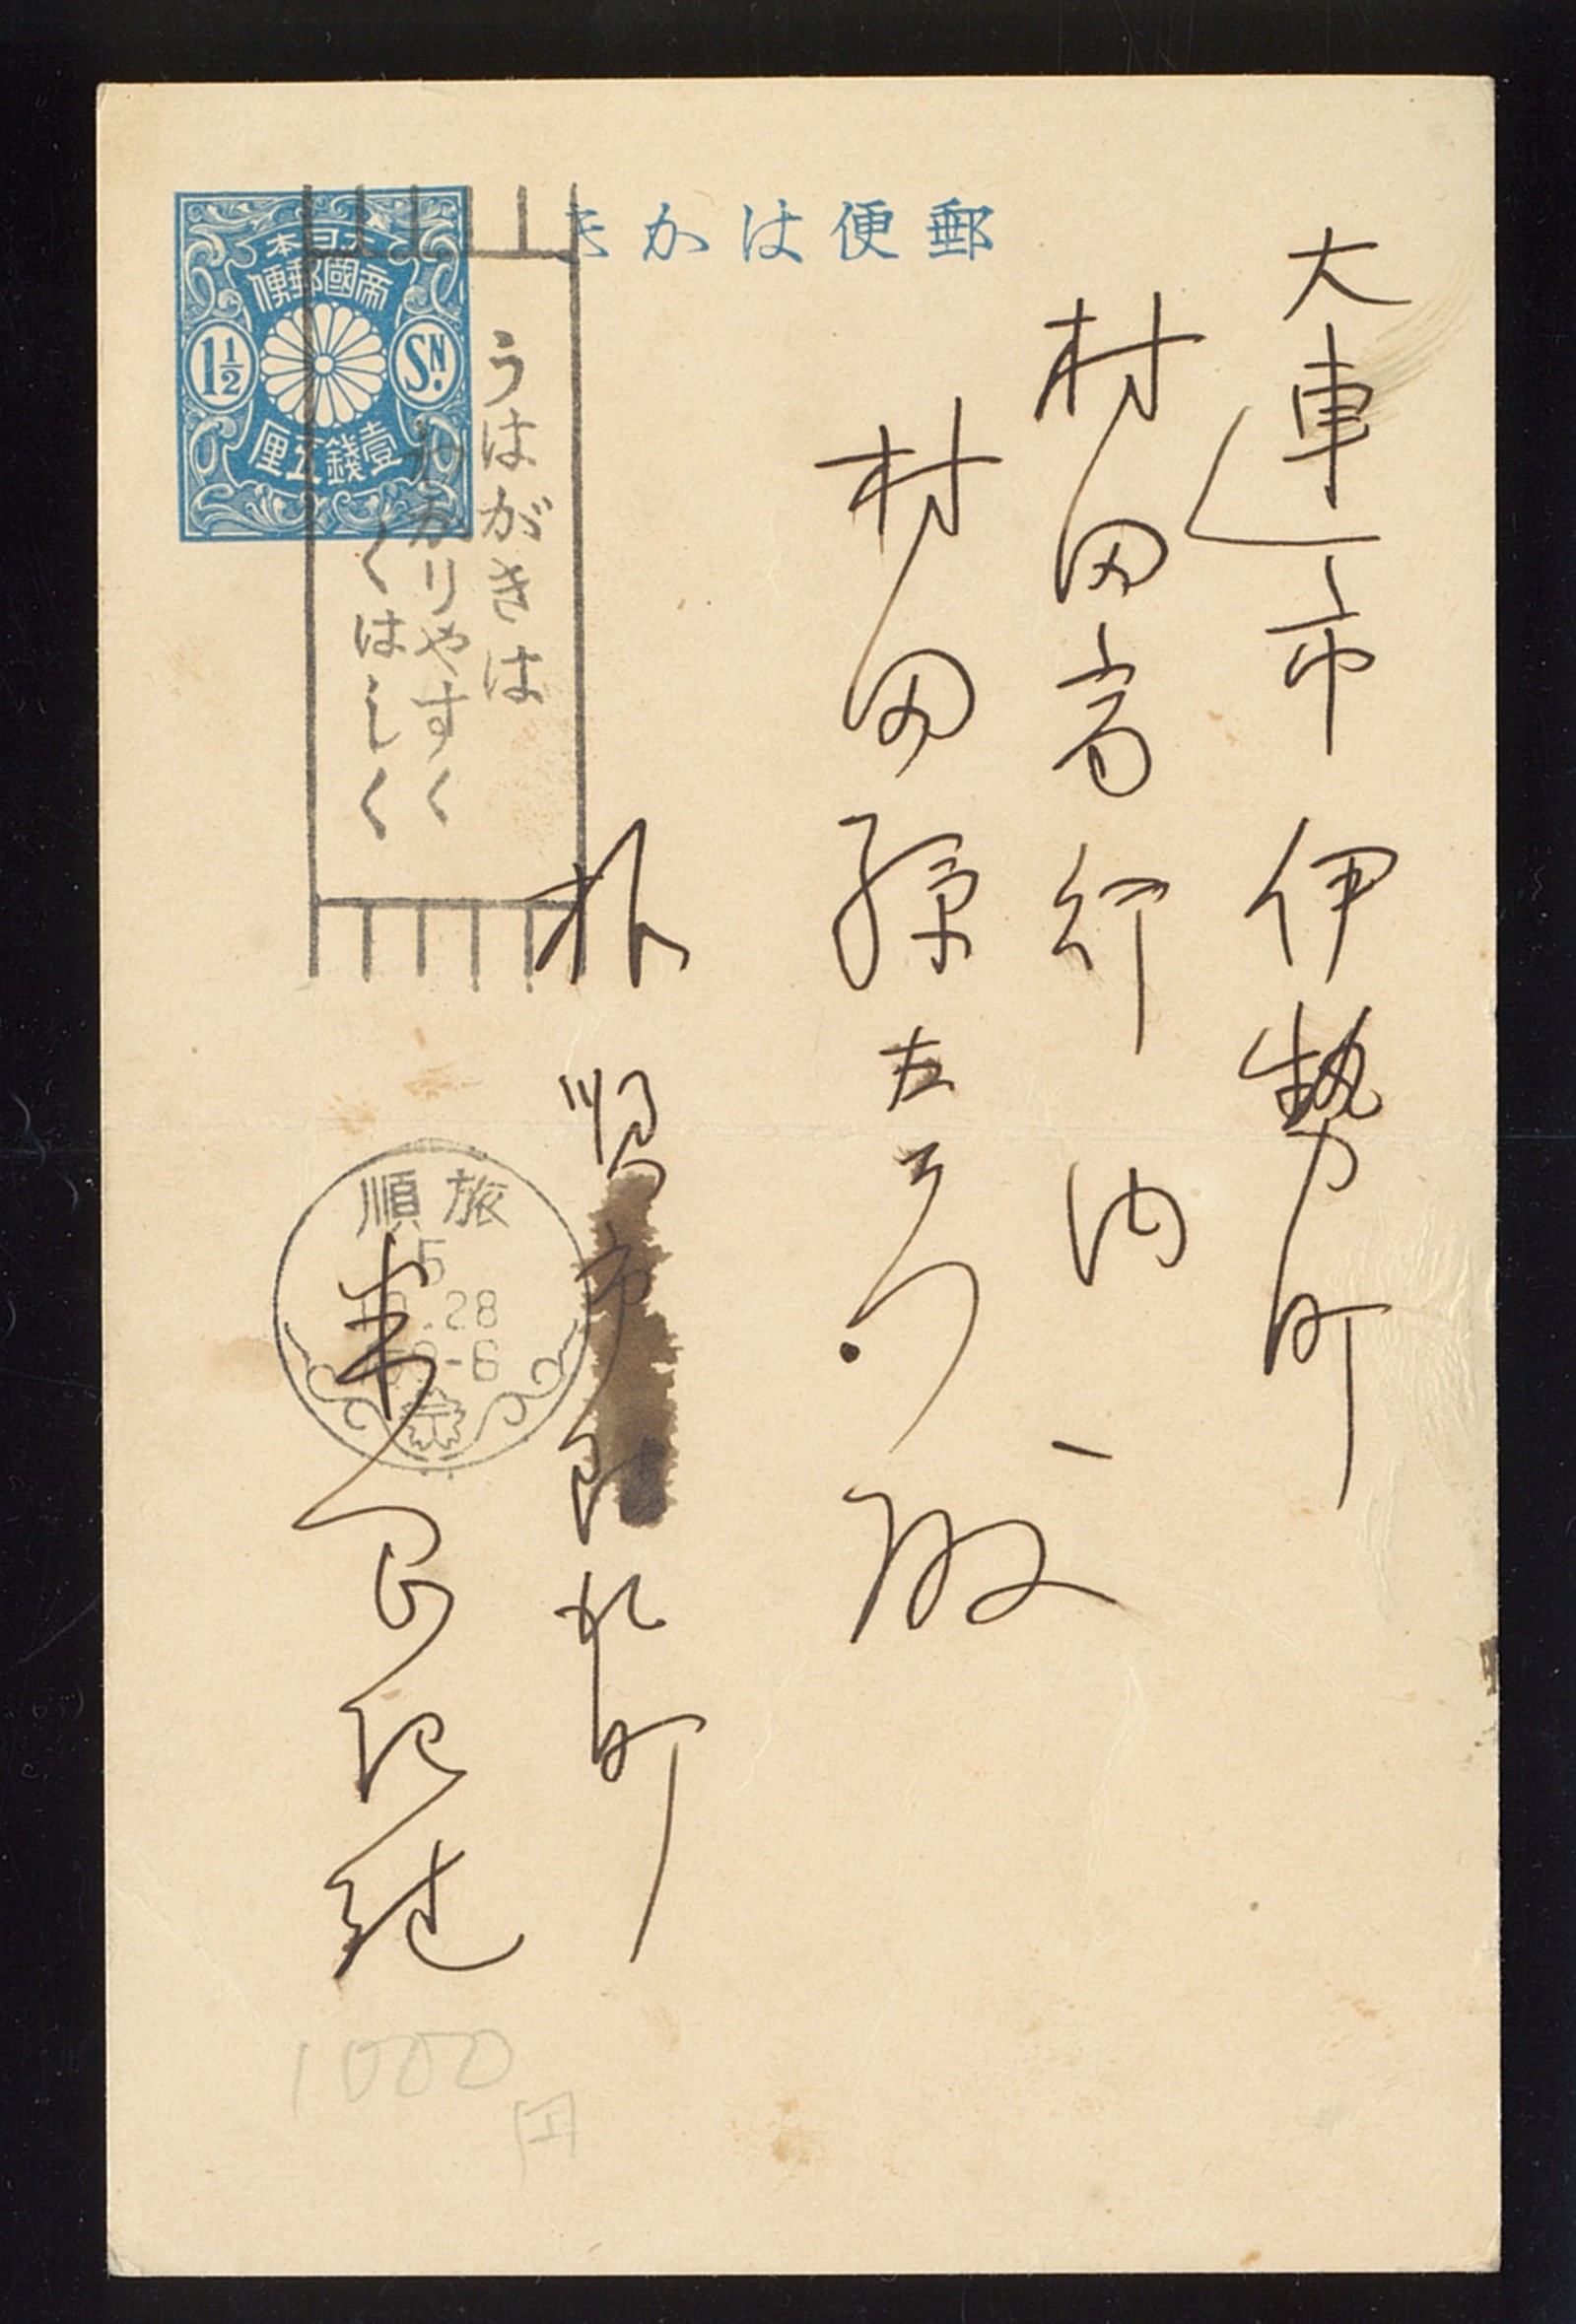 郵便はかき
大日本
帝國郵便
1½
SN.
壹錢五厘
うはがきは
わかりやすく
くはしく
大連市伊勢町
村田商行内
村田孫左ヱ門殿
旅順
5
.28
-6
旅順市
町
1000
円